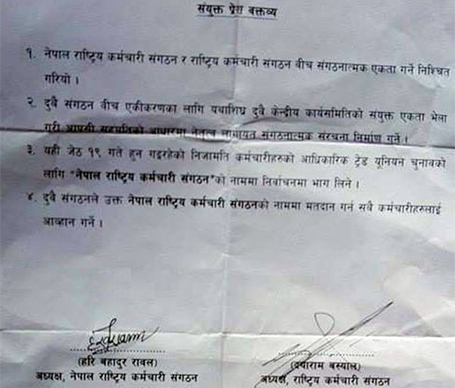 संयुक्त प्रेस वक्तव्य
१. नेपाल राष्ट्रिय कर्मचारी संगठन र राष्ट्रिय कर्मचारी संगठन वीच संगठनात्मक एकता गर्ने निश्चित
गरियो ।
२. दुवै संगठन वीच एकीकरणका लागि यथाशिघ्र दुवै केन्द्रीय कार्यसमितिको संयुक्त एकता भेला
गरी आपसी सहमतिको आधारमा नेतृत्व लगायत संगठनात्मक संरचना निर्माण गर्ने ।
३. यही जेठ १९ गते हुन गइरहेको निजामति कर्मचारीहरुको आधिकारिक ट्रेड यूनियन चुनावको
लागि "नेपाल राष्ट्रिय कर्मचारी संगठन"को नाममा निर्वाचनमा भाग लिने ।
४. दुवै संगठनले उक्त नेपाल राष्ट्रिय कर्मचारी संगठनको नाममा मतदान गर्न सवै कर्मचारीहरुलाई
आव्हान गर्ने ।
(हरि बहादुर रावल)
अध्यक्ष, नेपाल राष्ट्रिय कर्मचारी संगठन
(दयाराम बस्याल)
अध्यक्ष, राष्ट्रिय कर्मचारी संगठन